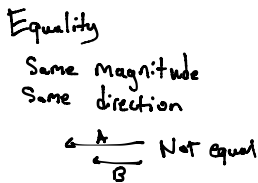 Equality
Same magnitude
Same direction
A
Not equal
B